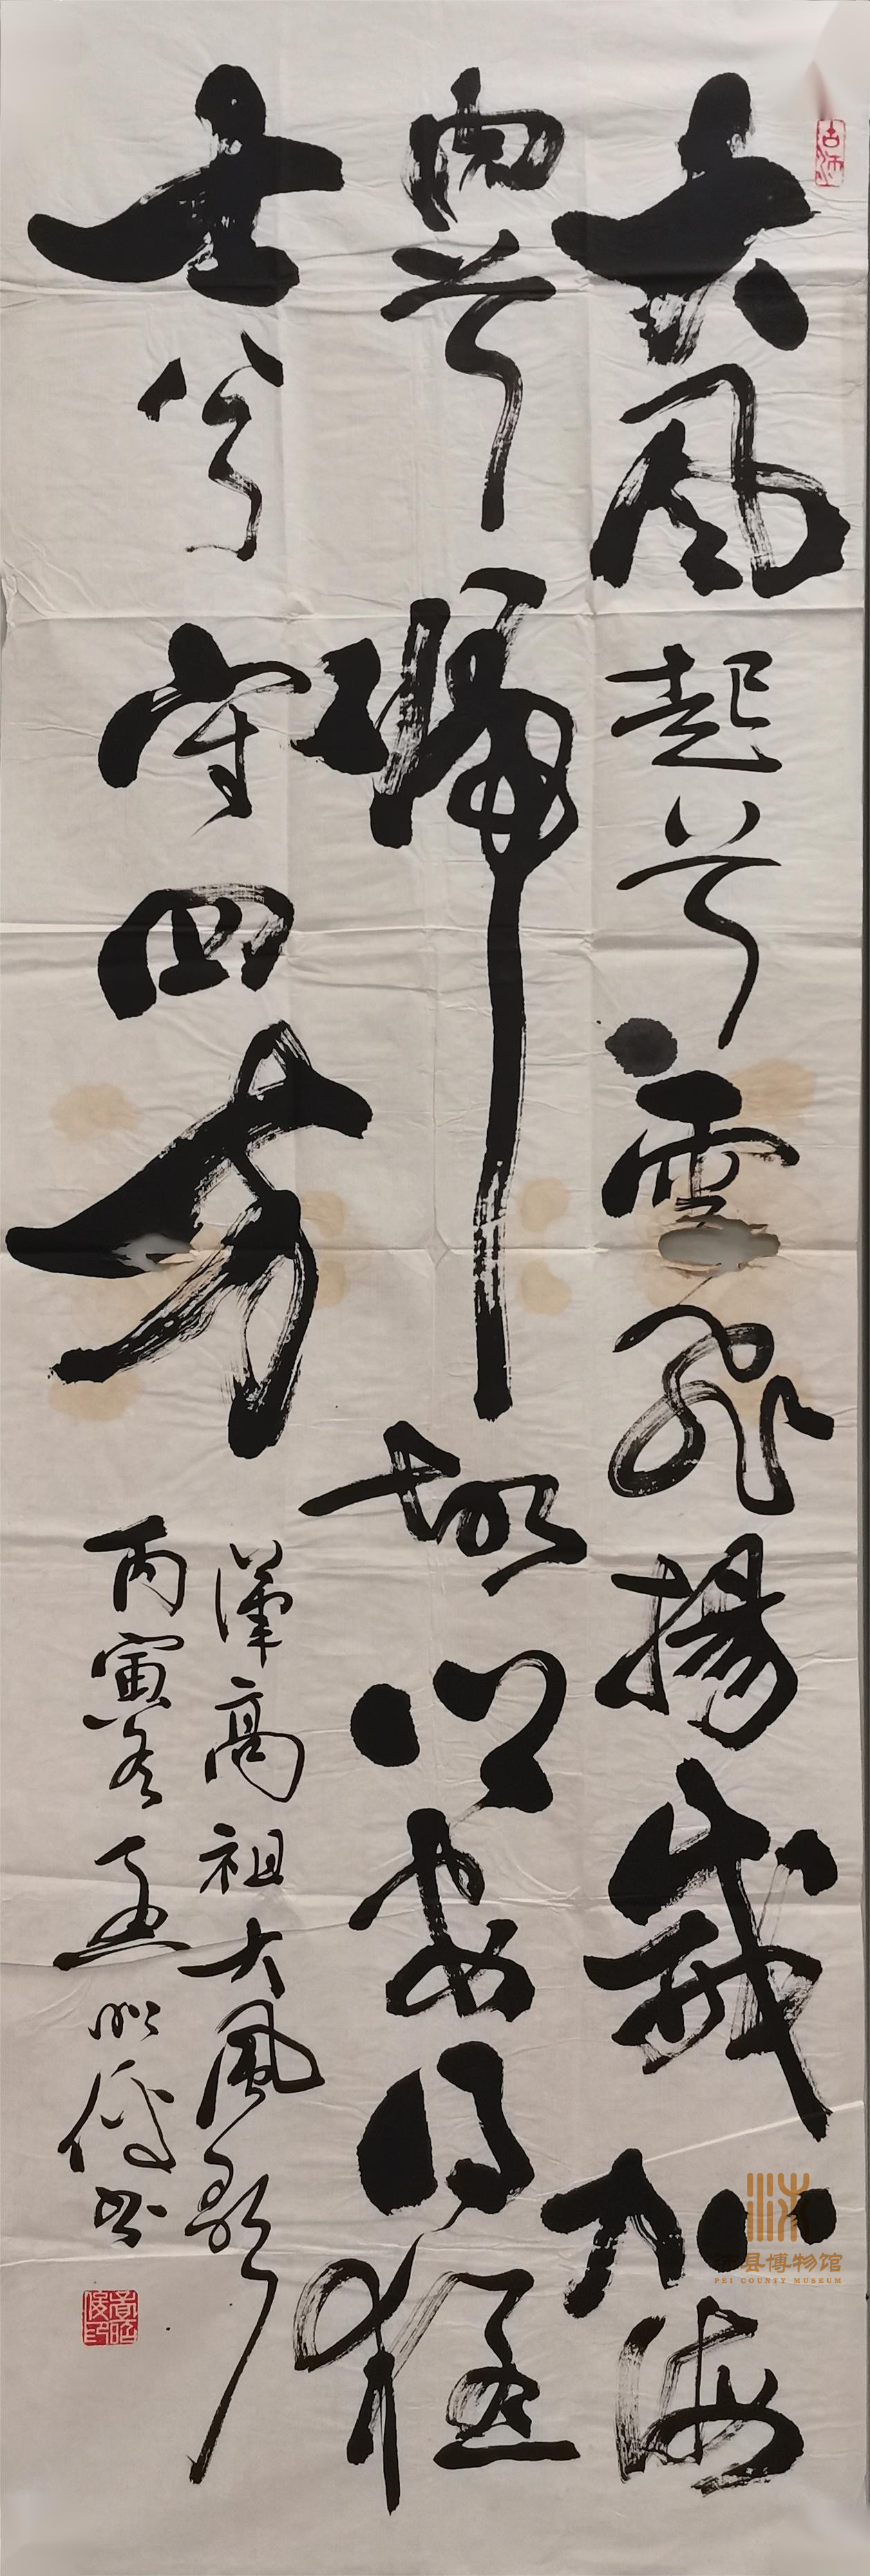 古沛
大風起兮雲飛揚威加海
內兮歸故鄉安得猛
士兮守四方
漢高祖大風歌
丙寅冬孟昭俊书
孟昭俊印
沛县博物馆
PEI COUNTY MUSEUM